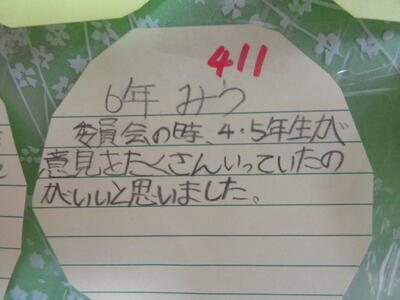 411
6年 みう
委員会の時、4・5年生が
意見をたくさんいっていたの
がいいと思いました。